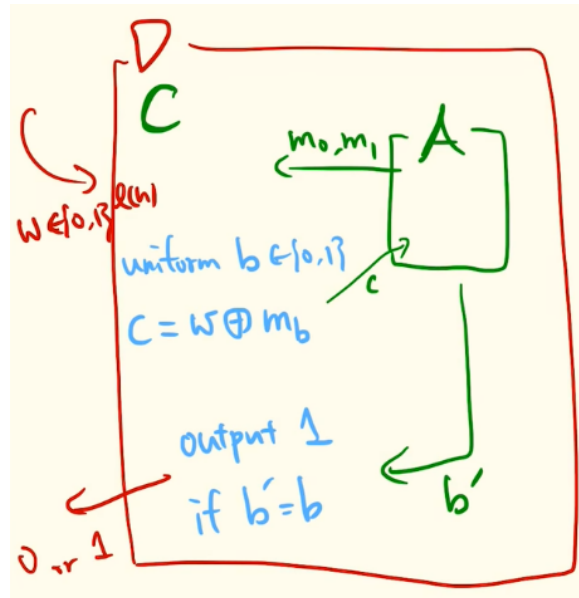 D
C
A
m₀, m₁
w ∈ {0,1}^{ℓ(n)}
uniform b ∈ {0,1}
c
C = w ⊕ m_b
output 1
if b′ = b
b′
0 or 1